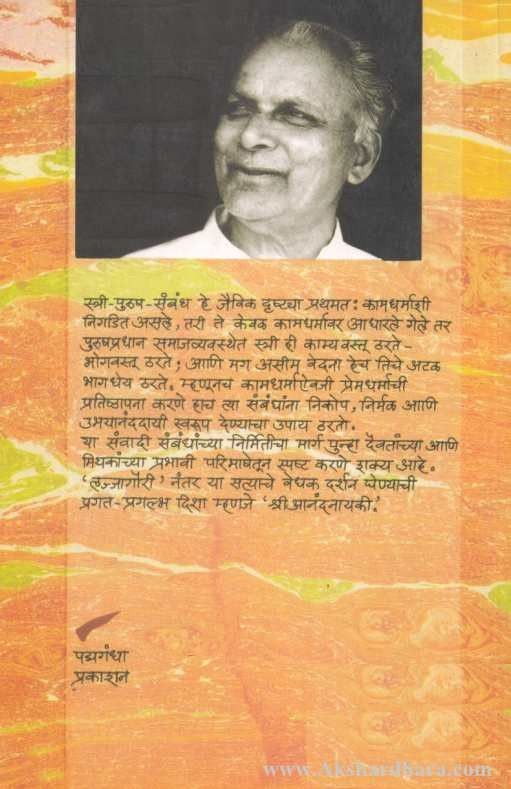 स्त्री-पुरुष-संबंध हे जैविक दृष्ट्या प्रथमत: कामधर्माशी
निगडित असले, तरी ते केवळ कामधर्मावर आधारले गेले तर
पुरुषप्रधान समाजव्यवस्थेत स्त्री ही काम्यवस्तू ठरते-
भोगवस्तू ठरते; आणि मग असीम वेदना हेच तिचे अटळ
भागधेय ठरते. म्हणूनच कामधर्माऐवजी प्रेमधर्माची
प्रतिष्ठापना करणे हाच त्या संबंधांना निकोप, निर्मळ आणि
उभयानंददायी स्वरूप देण्याचा उपाय ठरतो.
या संवादी संबंधांच्या निर्मितीचा मार्ग पुन्हा दैवतांच्या आणि
मिथकांच्या प्रभावी परिभाषेतून स्पष्ट करणे शक्य आहे.
'लज्जागौरी' नंतर या सत्याचे वेधक दर्शन घेण्याची
प्रगत-प्रगल्भ दिशा म्हणजे 'श्रीआनंदनायकी.'
पद्मगंधा
प्रकाशन
www.Akshardhara.com